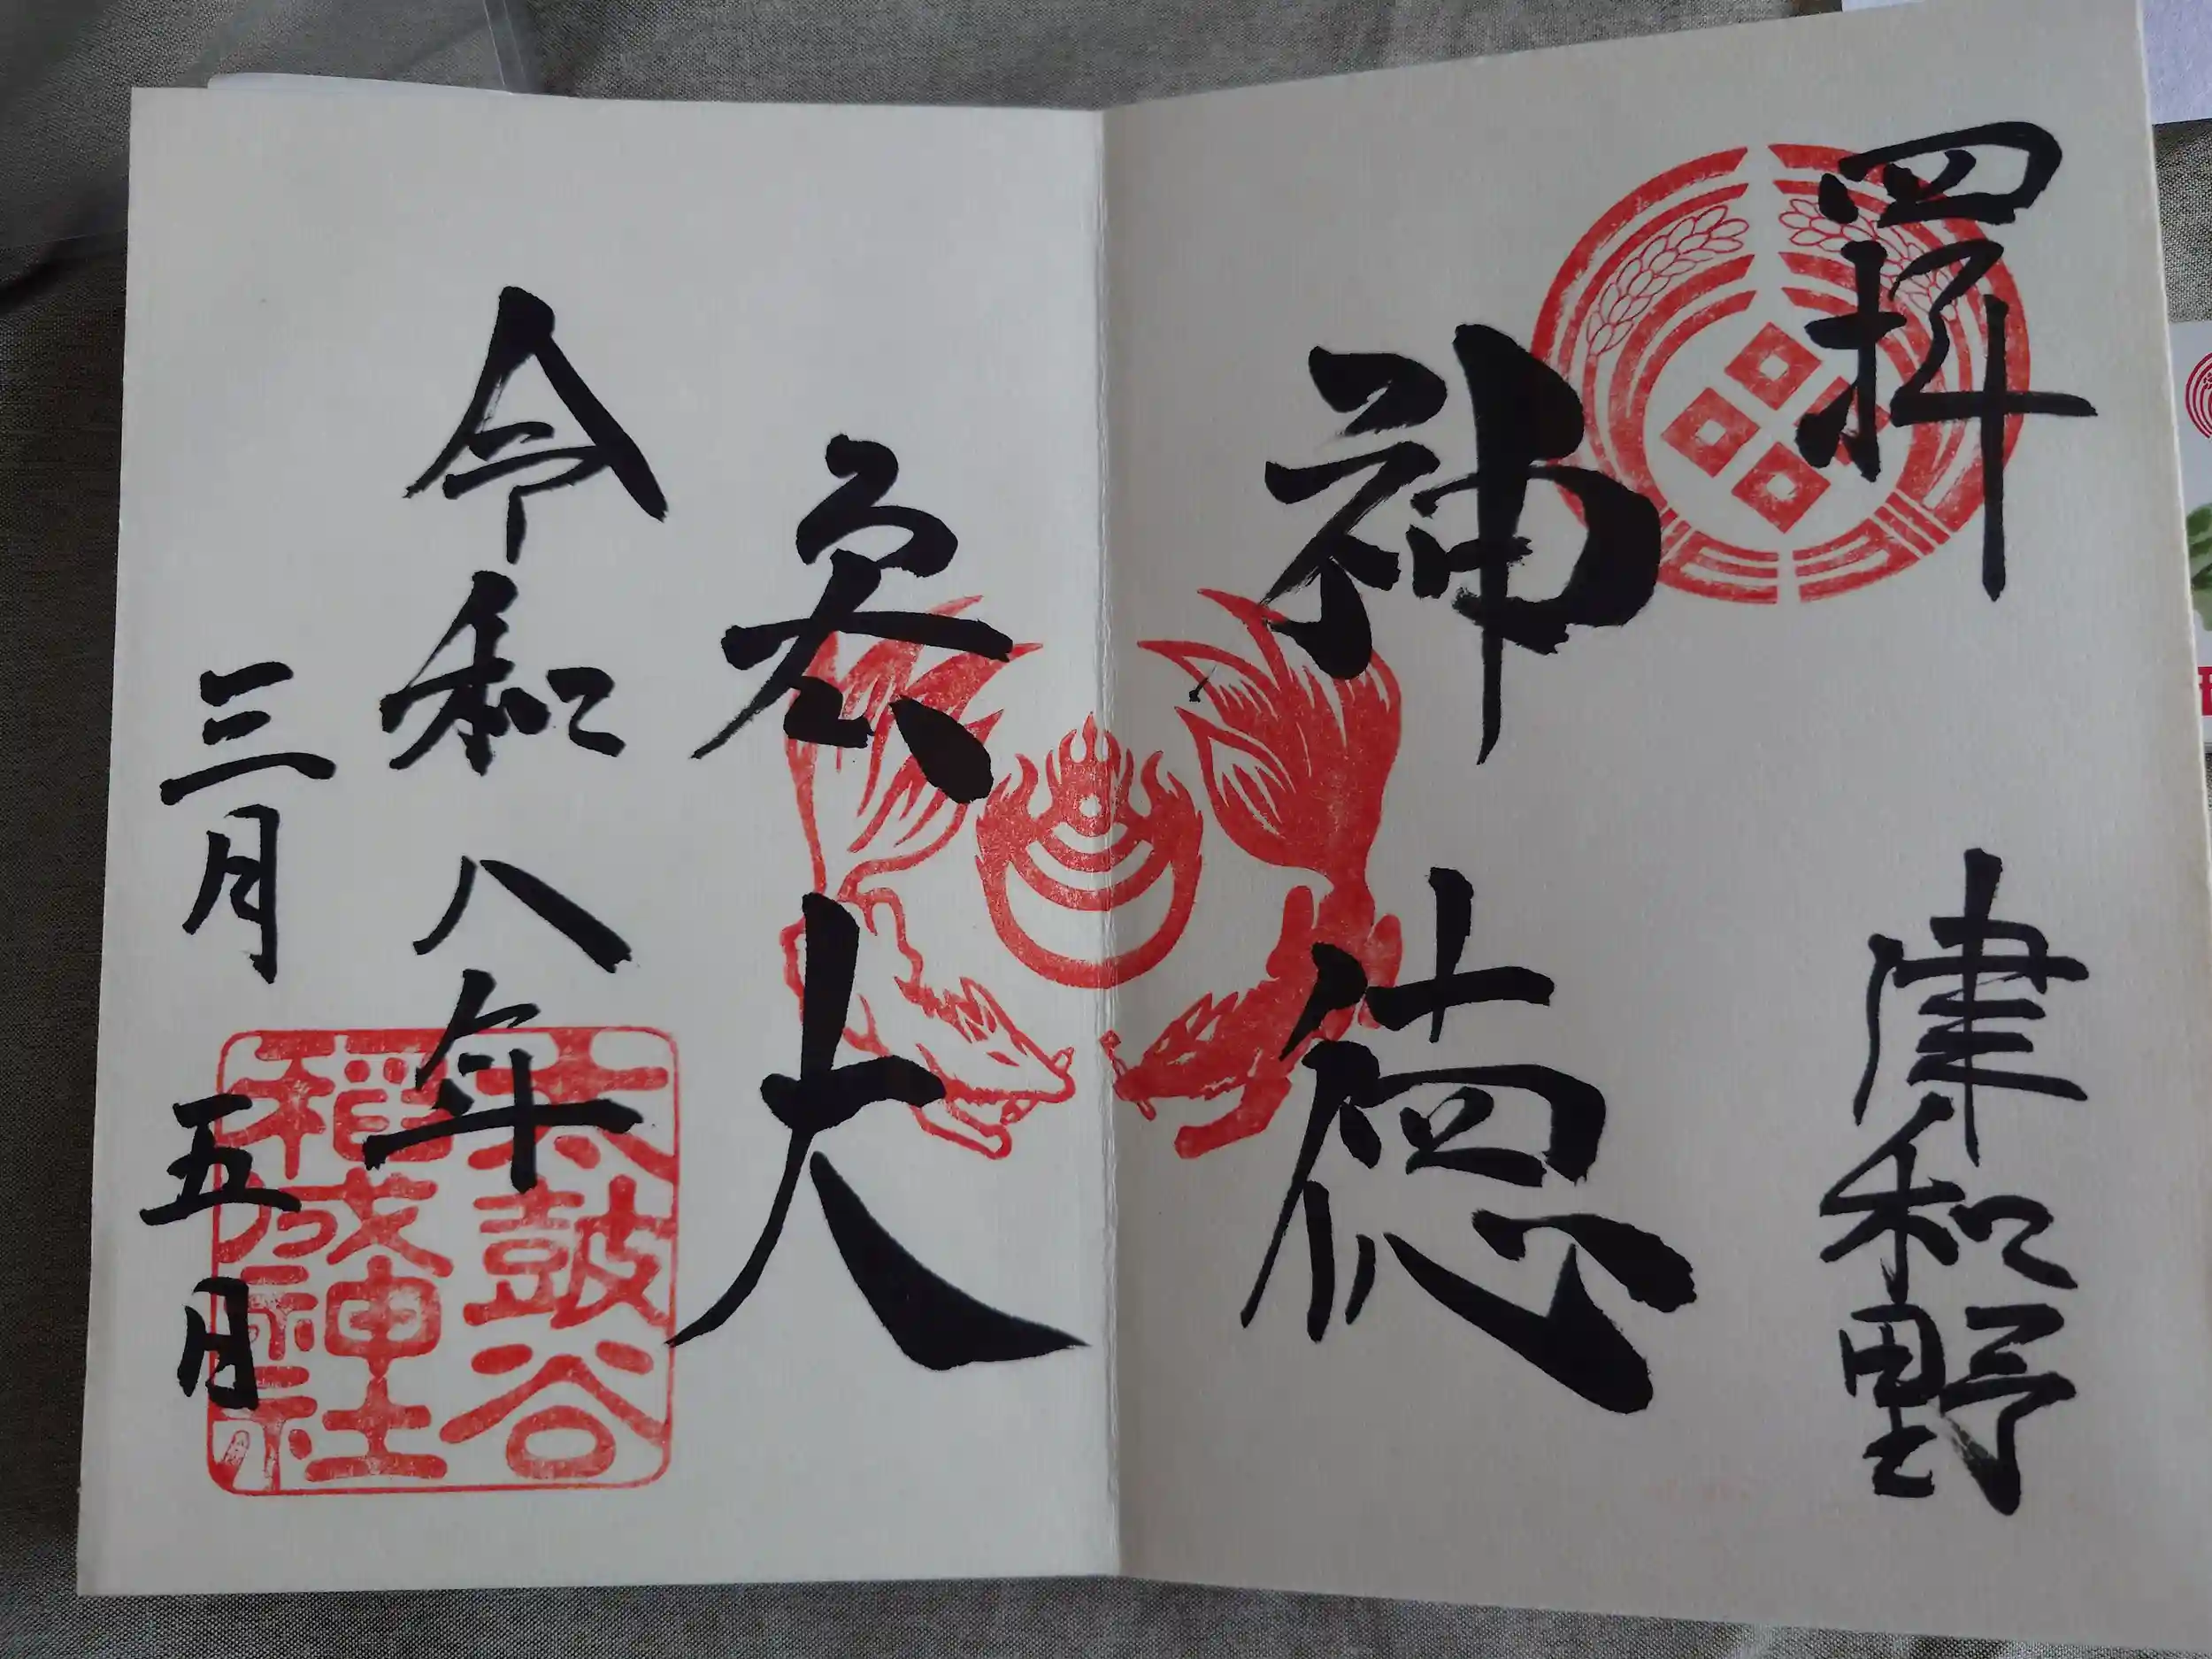 四拝
津和野
神徳
宏大
令和八年
三月五日
太皷谷
稲成神社